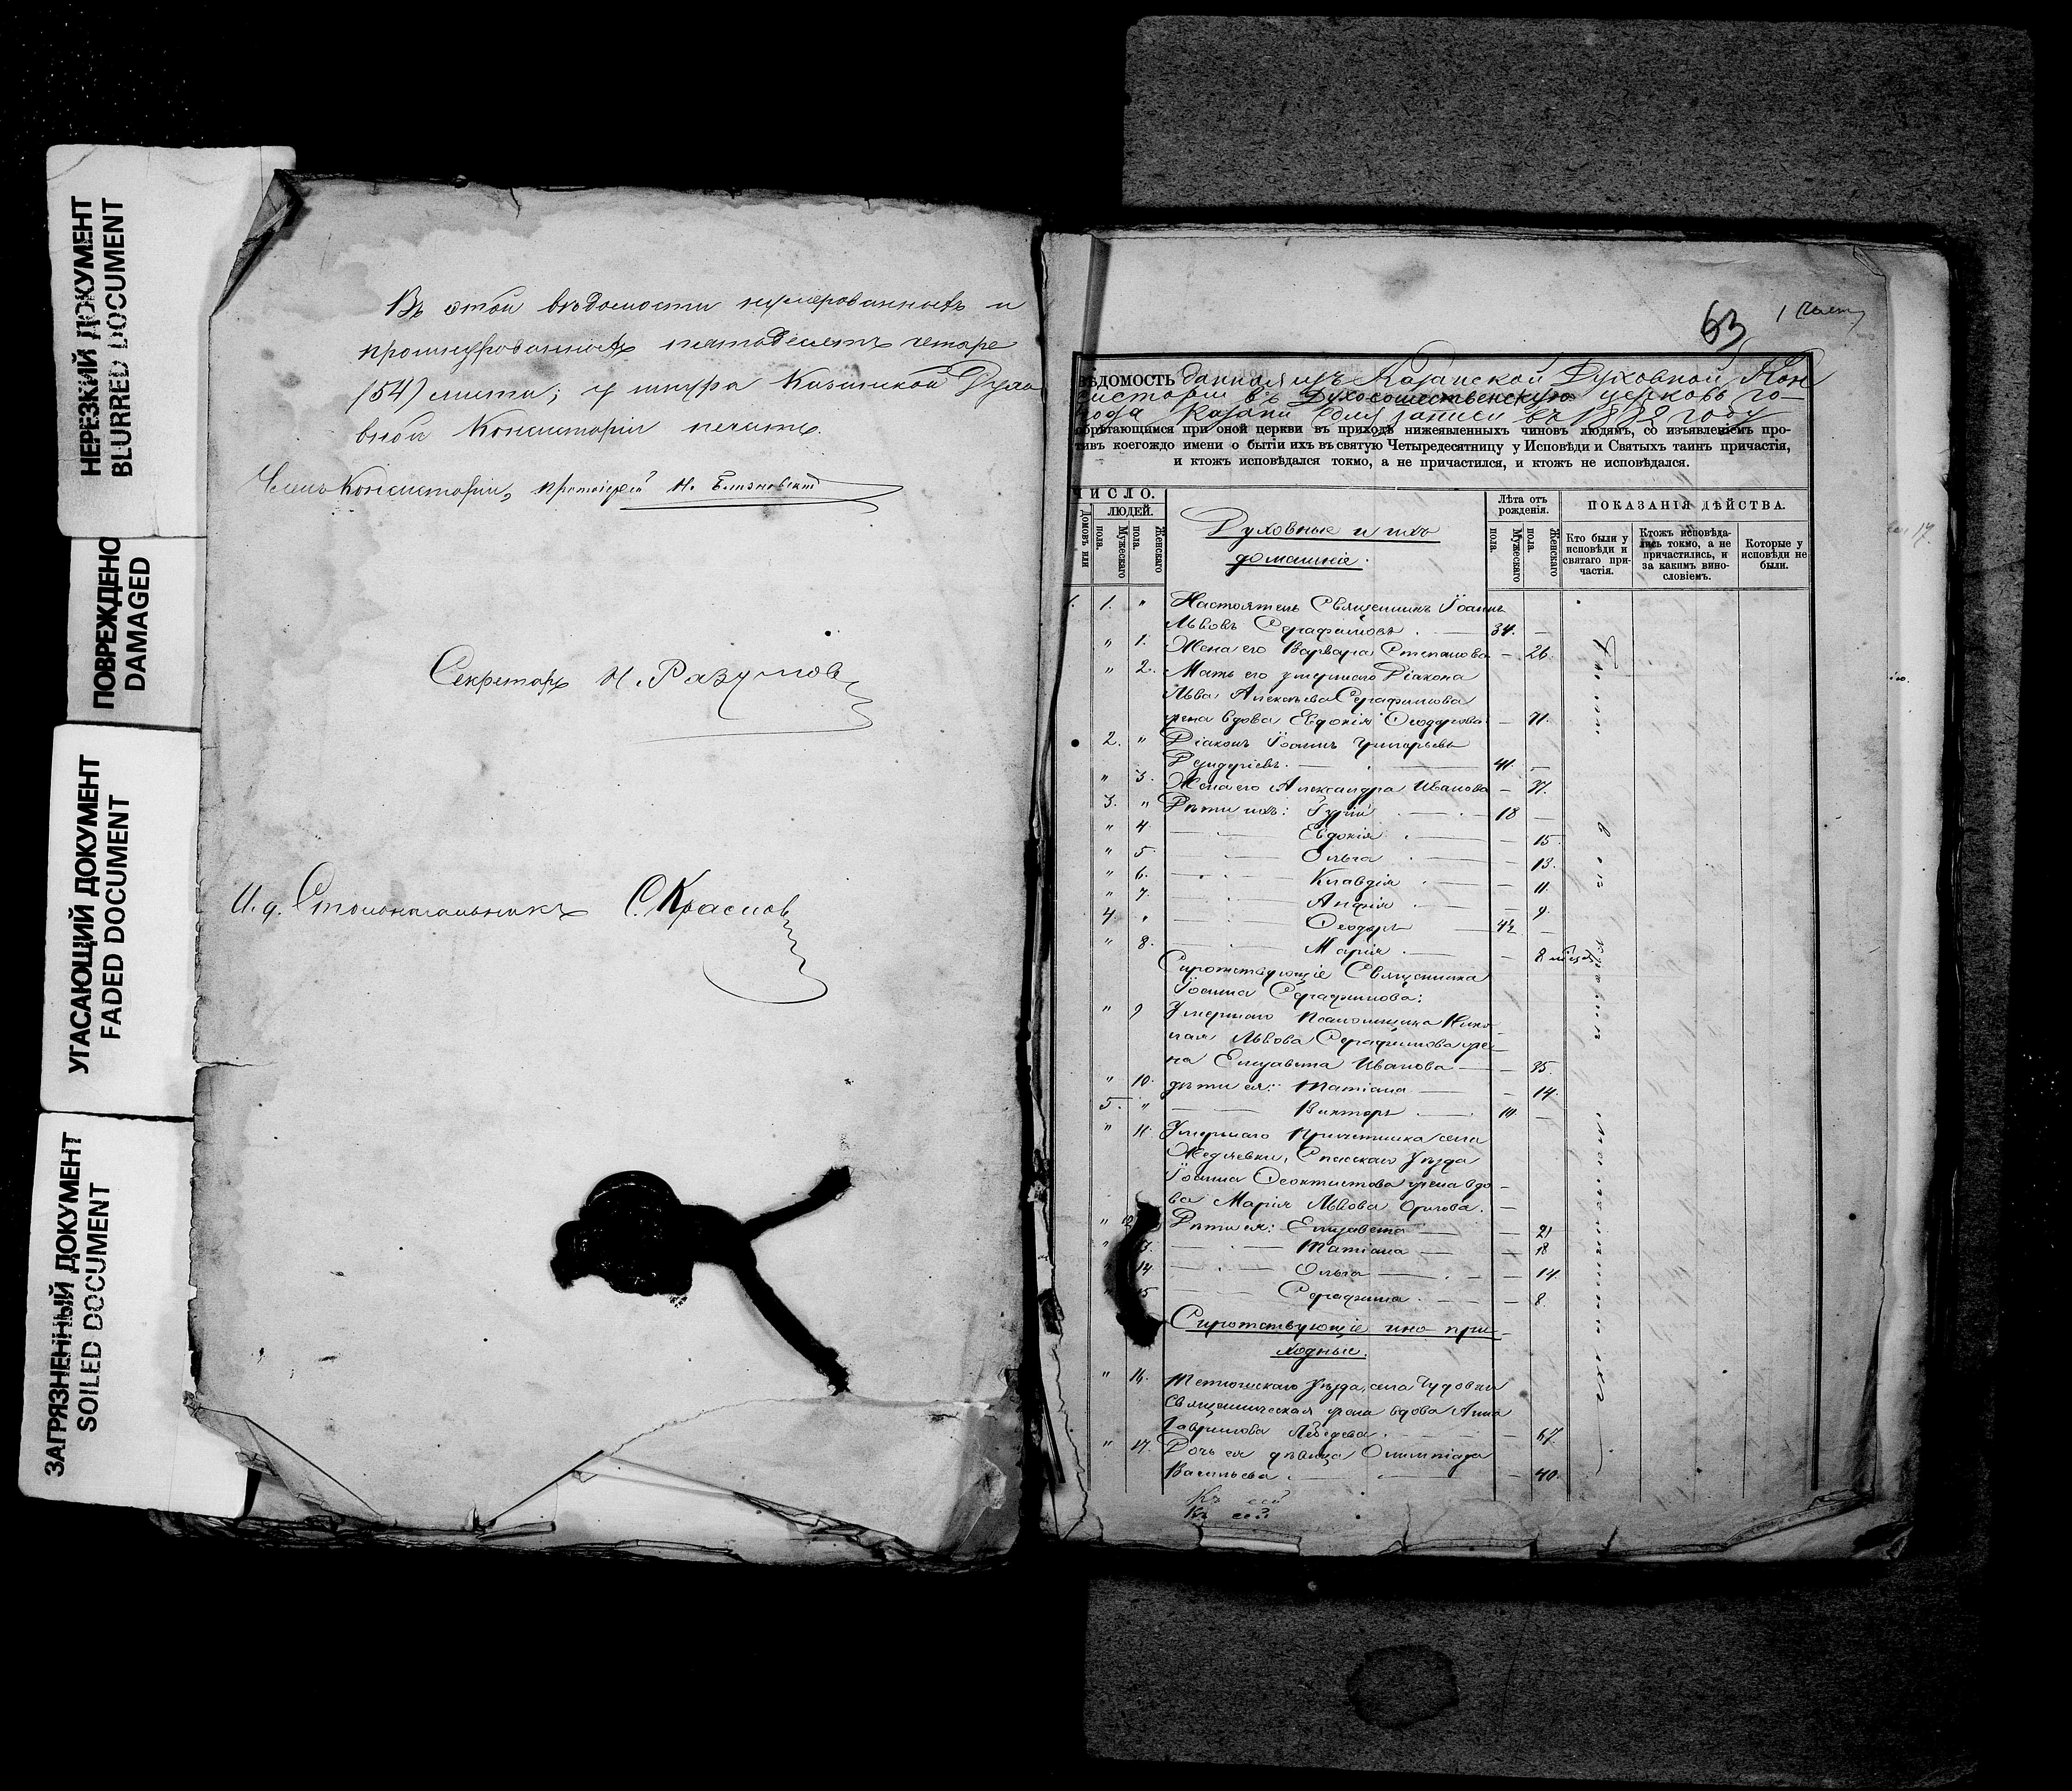 НЕРЕЗКИЙ ДОКУМЕНТ
BLURRED DOCUMENT
ПОВРЕЖДЕНО
DAMAGED
УГАСАЮЩИЙ ДОКУМЕНТ
FADED DOCUMENT
ЗАГРЯЗНЕННЫЙ ДОКУМЕНТ
SOILED DOCUMENT
Въ этой вѣдомости нумерованныхъ и
прошнурованныхъ пятьдесятъ четыре
(54) листа; у шнура Казанской Духо
вной Консисторіи печать.
Членъ Консисторіи, протоіерей И.
Секретарь Н. Разумовъ
И. д. Столоначальника С. Красновъ
63
ВѢДОМОСТЬ данная изъ Казанской Духовной Кон
систоріи въ Духосошественскую церковь го-
рода Казани для записи въ 1882 году
обрѣтающимся при оной церкви въ приходѣ нижеявленныхъ чиновъ людямъ, со изъявленіемъ про-
тивъ коегождо имени о бытіи ихъ въ святую Четыредесятницу у Исповѣди и Святыхъ таинъ причастія,
и ктожъ исповѣдался токмо, а не причастился, и ктожъ не исповѣдался.
ЧИСЛО.
Домовъ или
ЛЮДЕЙ.
Мужескаго пола.
Женскаго пола.
Духовные и ихъ
домашніе.
Лѣта отъ рожденія.
Мужескаго пола.
Женскаго пола.
ПОКАЗАНІЯ ДѢЙСТВА.
Кто были у исповѣди и святаго при-частія.
Ктожъ исповѣда-лись токмо, а не причастились, и за какимъ вино-словіемъ.
Которые у исповѣди не были.
1. 1. " Настоятель Священникъ Іоаннъ
Львовъ Серафимовъ . — 34. —
" 1. Жена его Варвара Степанова — 26.
" 2. Мать его умершаго Діакона
Льва Алексѣева Серафимова
жена вдова Евдокія Ѳеодорова — 71.
2. " Діаконъ Іоаннъ Григорьевъ
41. —
" 3. Жена его Александра Иванова — 37.
3. " Дѣти ихъ: Гурій — 18 —
" 4. Евдокія — 15.
" 5. Ольга — 13.
" 6. Клавдія — 11.
" 7. — 9.
4. " Ѳеодоръ —
" 8. Марія — 8 мѣсяц.
Сиротствующіе Священника
Іоанна Серафимова:
" 9 Умершаго Псаломщика Нико-
лая Львова Серафимова же-
на Елизавета Иванова — 35.
" 10. дѣти ея: Татіана — 14.
5. " Викторъ —
" 11. Умершаго Причетника села
Спасскаго Уѣзда
Іоанна Ѳеоктистова жена вдо-
ва Марія Львова
" 12 Дѣти ея: Елизавета — 21
" 13. Татіана — 18
" 14 Ольга — 14.
" 15 Серафима. — 8.
Сиротствующіе ино при-
ходные.
" 16. Тетюшскаго Уѣзда, села
Священническая жена вдова Анна
Гаврилова Лебедева. — 67
" 17. Дочь ея дѣвица Олимпіада
Васильева . — 40.
Къ сей
Къ сей